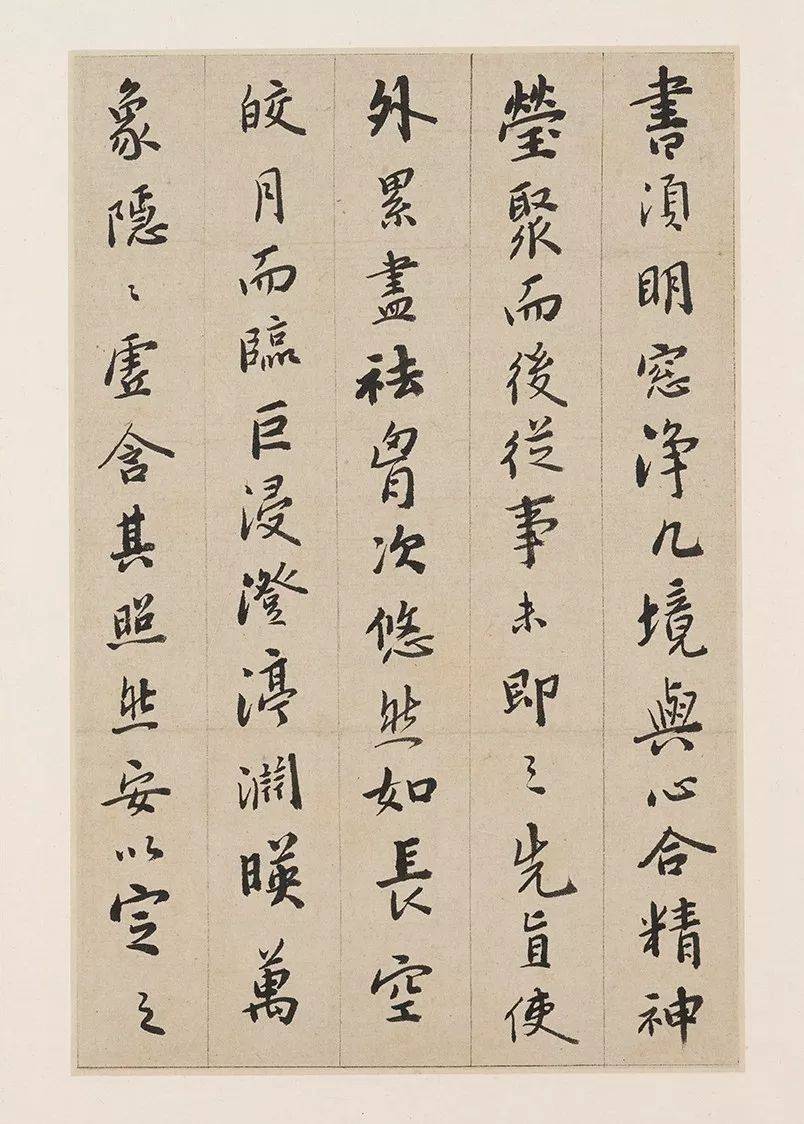 書須明窓淨几境與心合精神
瑩聚而後從事未即之先旨使
外累盡祛胷次悠然如長空
皎月而臨巨浸澄渟淵暎萬
象隱〻虛含其照然安以定之